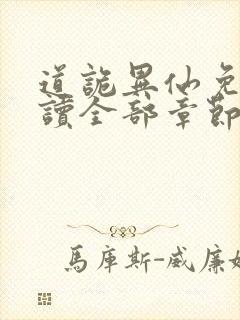 道詭異仙免
讀全部章節
馬庫斯-威廉